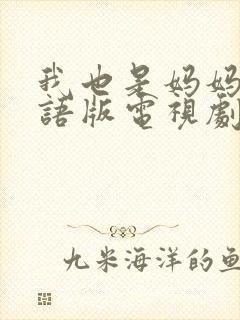 我也是妈妈
語版電視劇
九米海洋的鱼